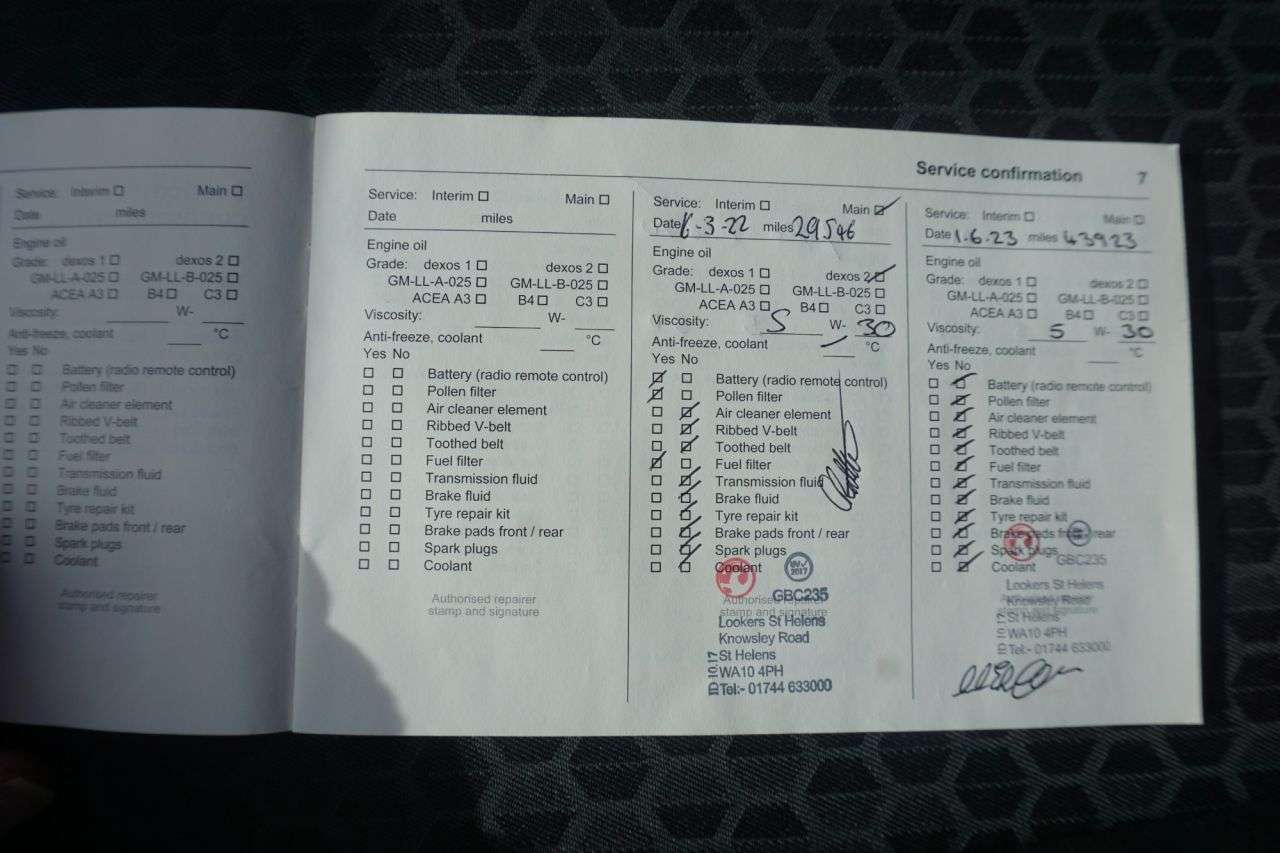 Service confirmation 7
Service: Interim Main
Date miles
Engine oil
Grade: dexos 1 dexos 2
GM-LL-A-025 GM-LL-B-025
ACEA A3 B4 C3
Viscosity: W-
Anti-freeze, coolant °C
Yes No
Battery (radio remote control)
Pollen filter
Air cleaner element
Ribbed V-belt
Toothed belt
Fuel filter
Transmission fluid
Brake fluid
Tyre repair kit
Brake pads front / rear
Spark plugs
Coolant
Authorised repairer
stamp and signature
Service: Interim Main
Date miles
Engine oil
Grade: dexos 1 dexos 2
GM-LL-A-025 GM-LL-B-025
ACEA A3 B4 C3
Viscosity: W-
Anti-freeze, coolant °C
Yes No
Battery (radio remote control)
Pollen filter
Air cleaner element
Ribbed V-belt
Toothed belt
Fuel filter
Transmission fluid
Brake fluid
Tyre repair kit
Brake pads front / rear
Spark plugs
Coolant
Authorised repairer
stamp and signature
Service: Interim Main
Date 6-3-22 miles 29546
Engine oil
Grade: dexos 1 dexos 2
GM-LL-A-025 GM-LL-B-025
ACEA A3 B4 C3
Viscosity: 5 W- 30
Anti-freeze, coolant °C
Yes No
Battery (radio remote control)
Pollen filter
Air cleaner element
Ribbed V-belt
Toothed belt
Fuel filter
Transmission fluid
Brake fluid
Tyre repair kit
Brake pads front / rear
Spark plugs
Coolant
2017
GBC235
Authorised repairer
stamp and signature
Lookers St Helens
Knowsley Road
St Helens
WA10 4PH
Tel:- 01744 633000
10.17
Service: Interim Main
Date 1.6.23 miles 43923
Engine oil
Grade: dexos 1 dexos 2
GM-LL-A-025 GM-LL-B-025
ACEA A3 B4 C3
Viscosity: 5 W- 30
Anti-freeze, coolant °C
Yes No
Battery (radio remote control)
Pollen filter
Air cleaner element
Ribbed V-belt
Toothed belt
Fuel filter
Transmission fluid
Brake fluid
Tyre repair kit
Brake pads front / rear
Spark plugs
Coolant
GBC235
Lookers St Helens
Knowsley Road
St Helens
WA10 4PH
Tel:- 01744 633000